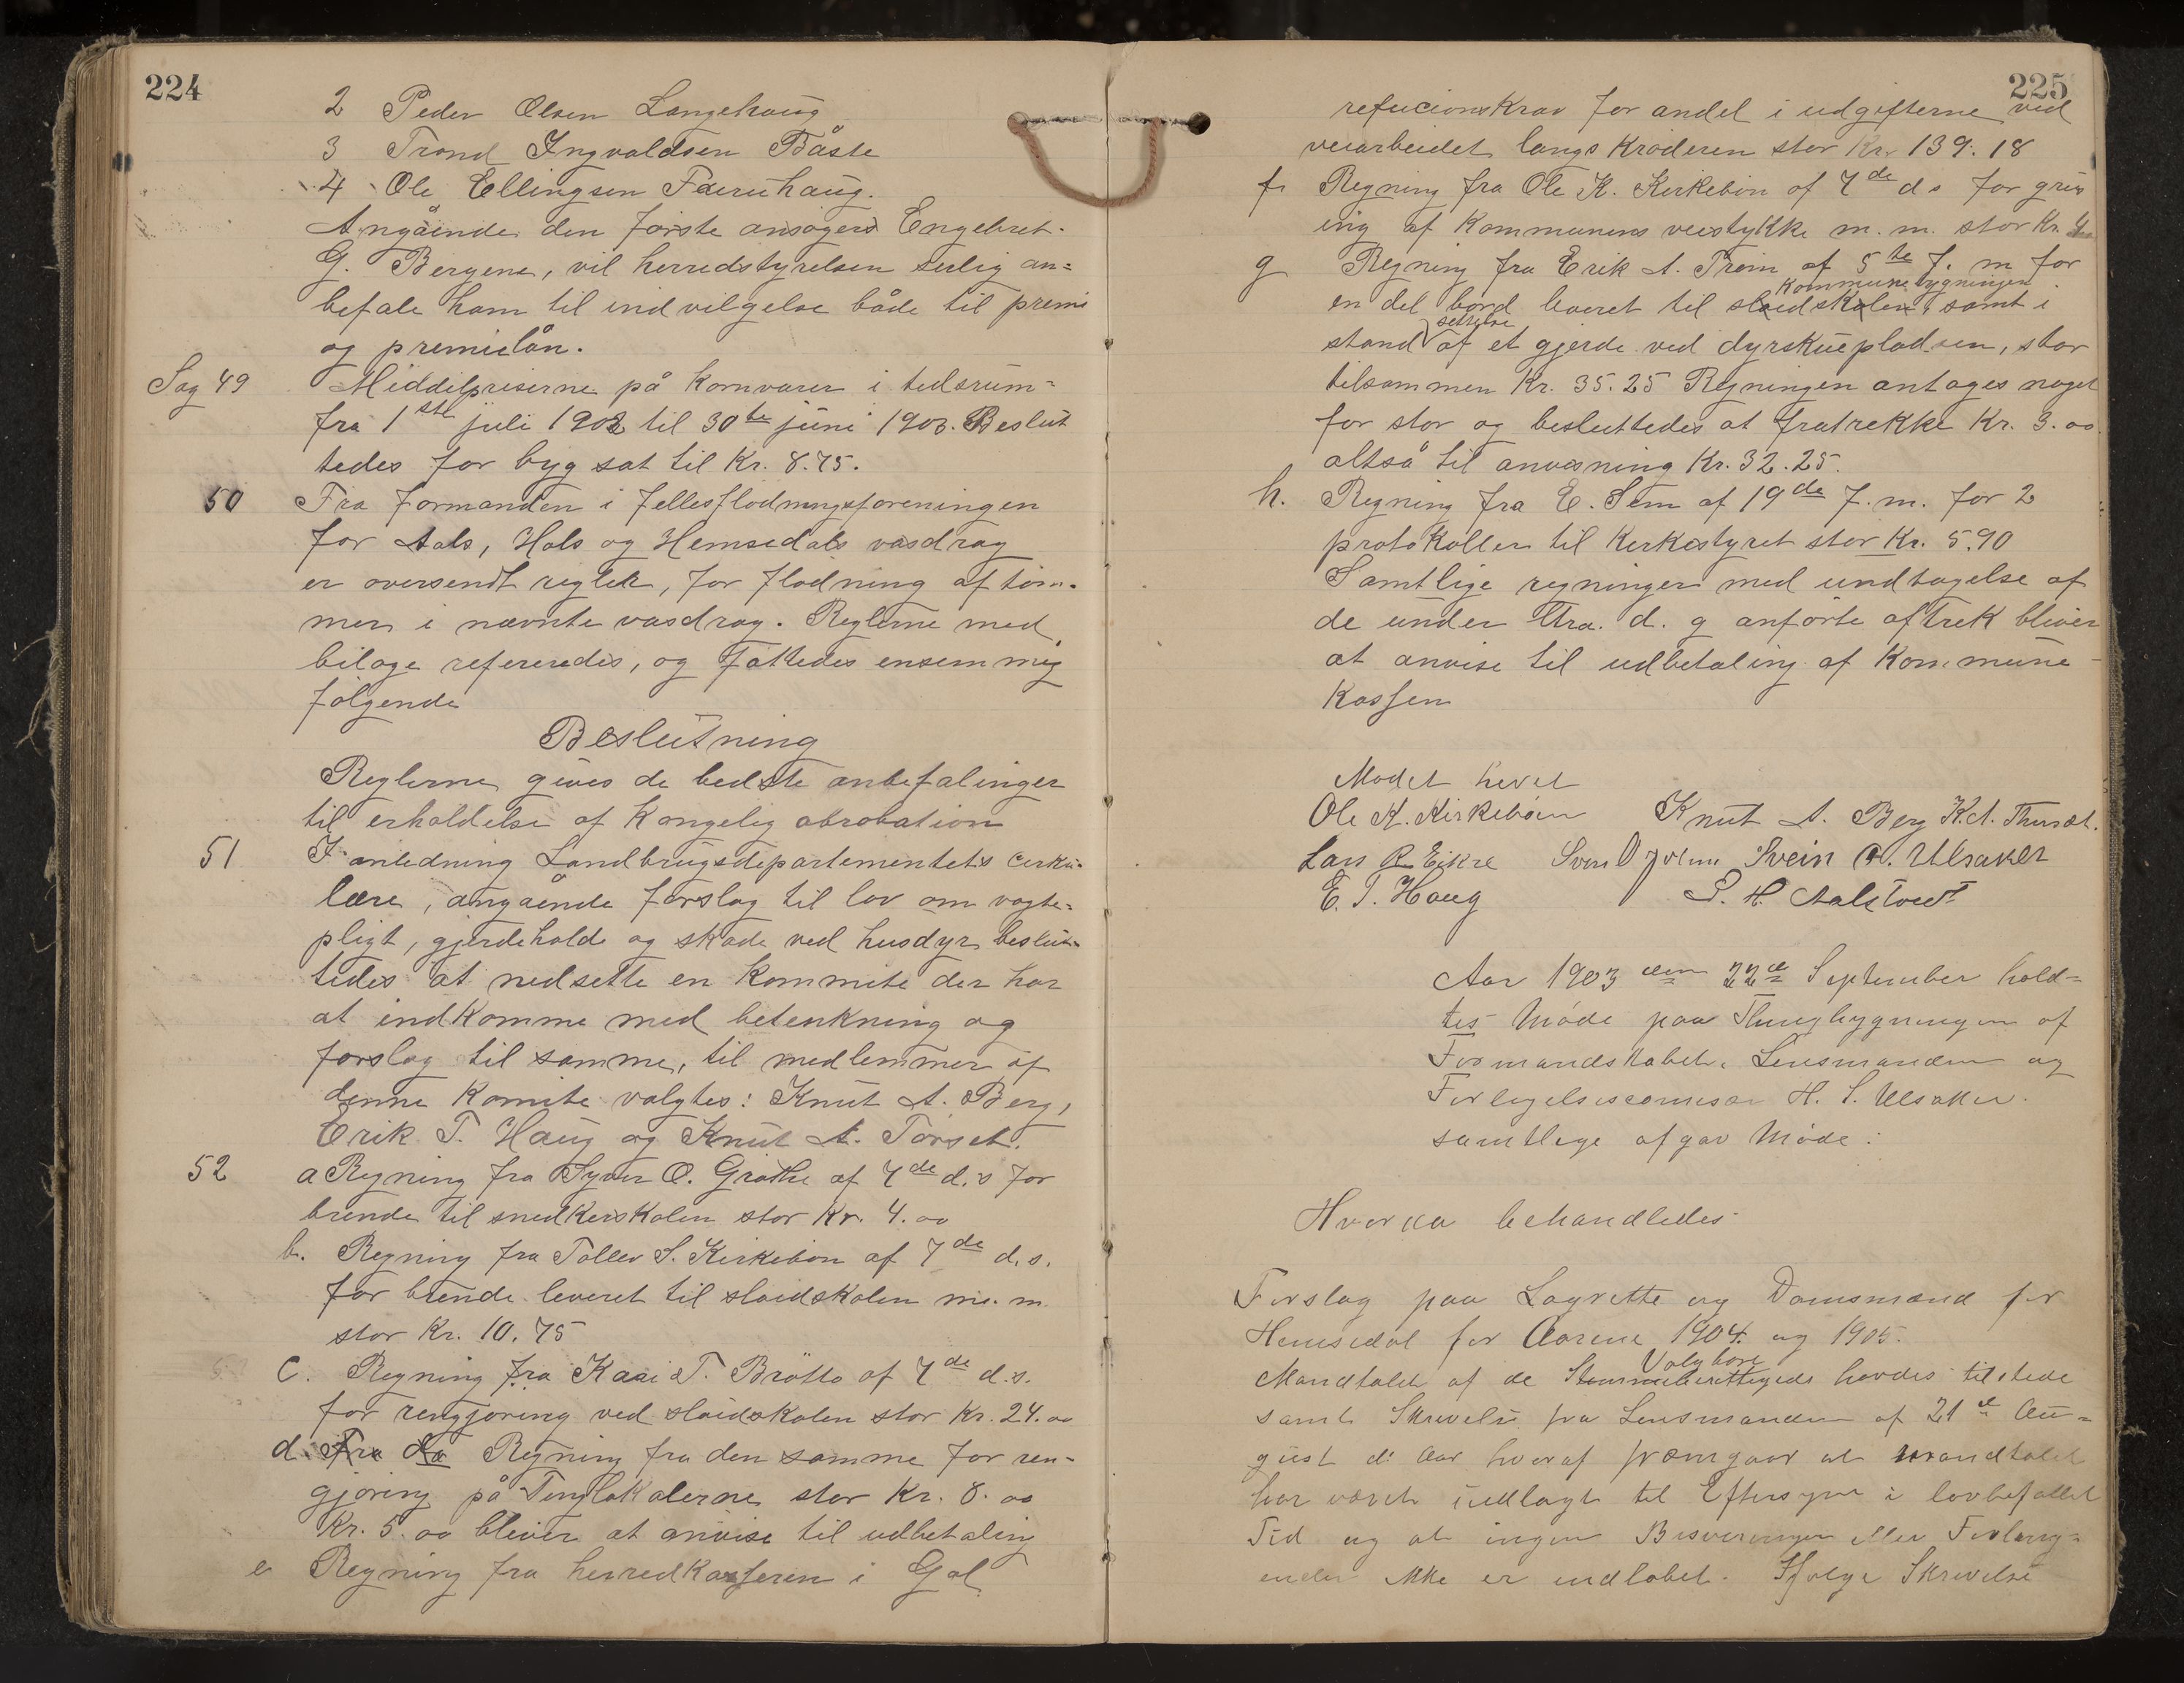 224
2 Peder Olsen Langehaug
3 Trond Ingvaldsen Båste
4 Ole Ellingsen
Angående den første ansøgers Engebret
G. Bergene, vil herredstyrelsen særlig an=
befale ham til indvilgelse både til premi
og premielån.
Sag 49 Middelpriserne på kornvarer i tidsrum=
fra 1ste juli 1902 til 30te juni 1903. Beslut
tedes for byg sat til Kr. 8.75.
50 Fra formanden i fellesflødningsforeningen
for Aals, Hols og Hemsedals vasdrag
er oversendt regler, for flødning af tøm-
mer i nævnte vasdrag. Reglerne med
bilage refereredes, og fattedes ensemmig
følgende
Beslutning
Reglerne gives de bedste anbefalinger
til erholdelse af Kongelig abrobation
51 I anledning Landbrugsdepartementets cirku-
lære, angående forslag til lov om vogte=
pligt, gjerdehold og skade ved husdyr beslut-
tedes at nedsette en kommite der har
at indkomme med betenkning og
forslag til samme, til medlemmer af
denne komite valgtes: Knut A. Berg,
Erik T. Haug og Knut A. Torset.
52 a Regning fra Syver O. Grøthe af 7de d.s for
brende til snedkerskolen stor Kr. 4.00
b. Regning fra Tollev S. Kirkebøn af 7de d.s.
for brende leveret til sløidskolen m. m
stor Kr. 10.75
C. Regning fra Kari T. Brøtto af 7de d.s.
for rengjøring ved sløidskolen stor Kr. 24.00
d. Fra da Regning fra den samme for ren-
gjøring på Tinglokalerne stor Kr. 8.00
Kr. 5.00 bliver at anvise til udbetaling
e Regning fra herredkasseren i Gol
225
refucionskrav for andel i udgifterne ved
veiarbeidet langs Krøderen stor Kr. 139.18
f. Regning fra Ole K. Kirkebøn af 7de ds for grus
ing af Kommunens veistykke m.m. stor Kr. 4
g Regning fra Erik A. Trøim af 5te f. m for
kommunebygningen
en del bord leveret til sløidskolen, samt i
settelse
stand af et gjerde ved dyrskuepladsen, stor
tilsammen Kr. 35.25 Regningen antages noget
for stor og besluttedes at fratrekke Kr. 3.00
altså til anvisning Kr. 32.25.
h. Regning fra E. Sem af 19de f. m. for 2
protokoller til Kirkestyret stor Kr. 5.90
Samtlige regninger med undtagelse af
de under ltra. d. g anførte aftrek bliver
at anvise til udbetaling af Kommune-
kassen
Mødet hevet
Ole K. Kirkebøen Knut A. Berg K.A. Thorset.
Lars R Eikre Svein Ulsaker
E. T. Haug P. H. Aalstvedt
Aar 1903 den 22de September hold=
tes Møde paa Thingbygningen af
Formandskabet, Lensmanden og
Forligelseskommisær H. S. Ulsaker.
samtlige afgav Møde:
Hvorda behandledes
Forslag paa Lagrette og Domsmænd for
Hemsedal for Aarene 1904 og 1905.
Valgbare
Mandtalet af de Stemmeberettigede havdes tilstede
samt Skrivelse fra Lensmanden af 21de Au=
gust d: Aar hvoraf fremgaar at mandtalet
har været udlagt til Eftersyn i lovbefallet
Tid og at ingen Besværinger eller Forlang=
ender ikke er indløbet. Ifølge Skrivelse